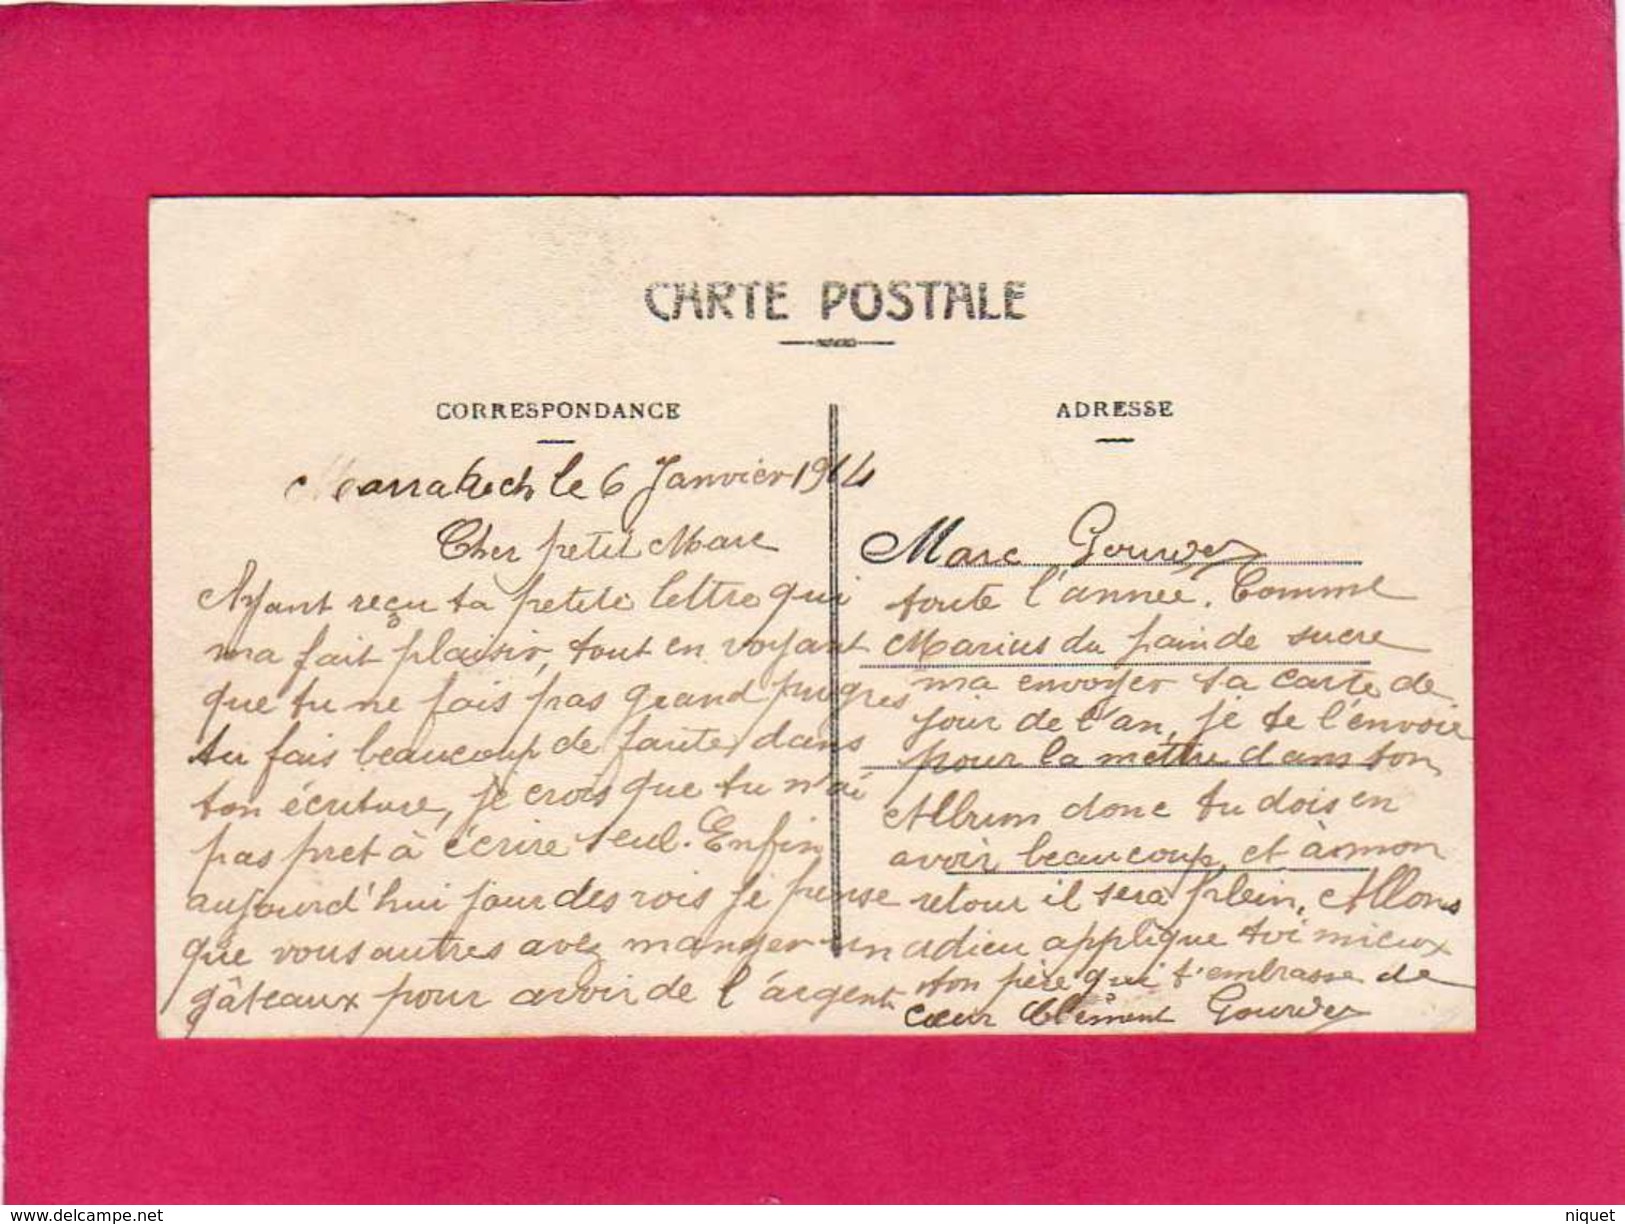 CARTE POSTALE
CORRESPONDANCE
Marrakech le 6 Janvier 1914
Cher petit Marc
Ayant reçu ta petite lettre qui
ma fait plaisir, tout en voyant
que tu ne fais pas grand progres
tu fais beaucoup de faute dans
ton écriture, je crois que tu n'ai
pas pret à écrire seul. Enfin
aujourd'hui jour des rois je pense
que vous autres avez manger un
gâteaux pour avoir de l'argent
ADRESSE
Marc Gourvez
toute l'année. Comme
Marius du pain de sucre
ma envoyer sa carte de
jour de l'an, je te l'envoie
pour la mettre dans ton
Album donc tu dois en
avoir beaucoup, et à mon
retour il sera plein. Allons
adieu applique toi mieux
ton père qui t'embrasse de
cœur Clément Gourvez
delcampe.net
niquet